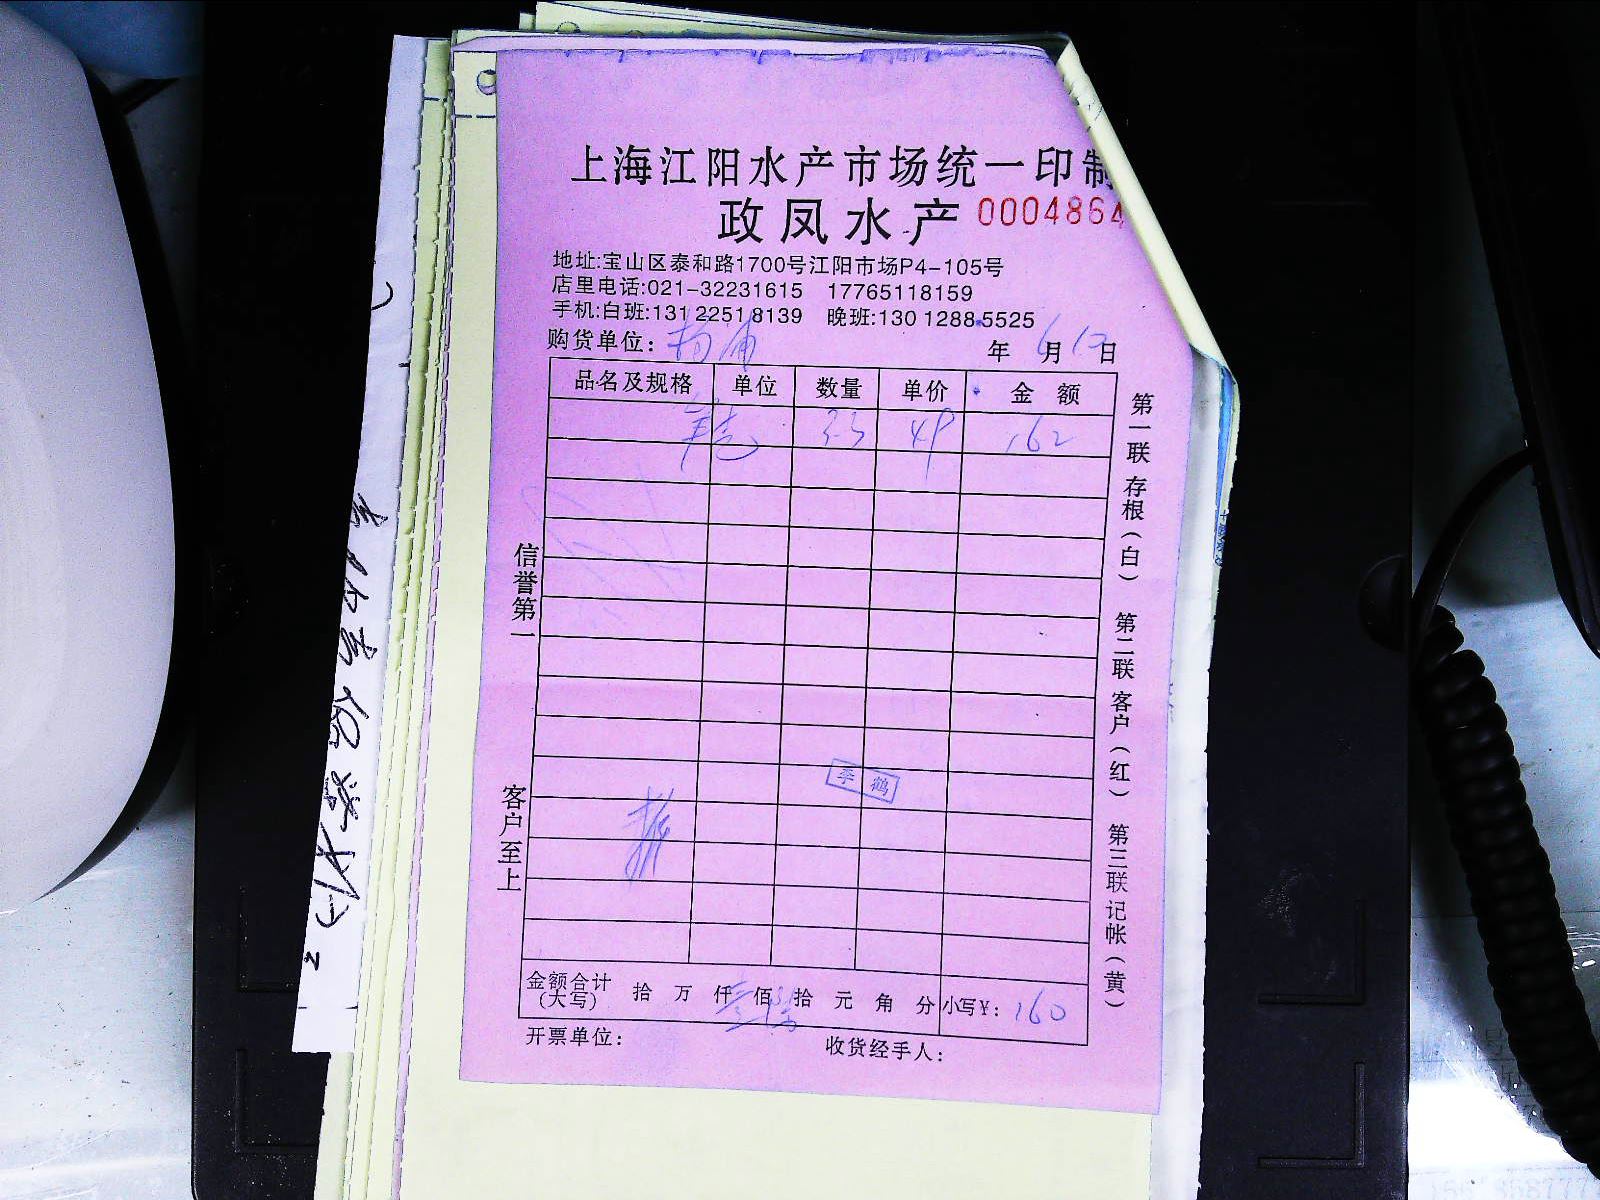 上海江阳水产市场统一印制
政凤水产 0004864
地址:宝山区泰和路1700号江阳市场P4-105号
店里电话:021-32231615 17765118159
手机:白班:131 2251 8139 晚班:130 1288 5525
购货单位: 杨浦 年 6月12日
品名及规格 单位 数量 单价 金额
3.3 49 162
信誉第一
客户至上
李鹤
金额合计(大写) 拾 万 仟 壹 佰 陆 拾 元 角 分 小写¥: 160
开票单位: 收货经手人:
第一联 存根(白) 第二联 客户(红) 第三联 记帐(黄)